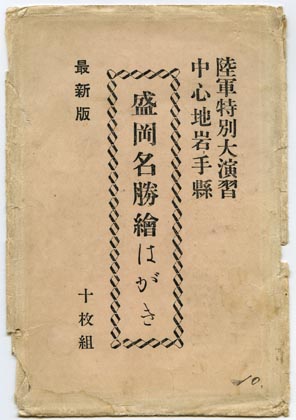 陸軍特別大演習
中心地岩手縣
盛岡名勝繪はがき
最新版
十枚組
10.